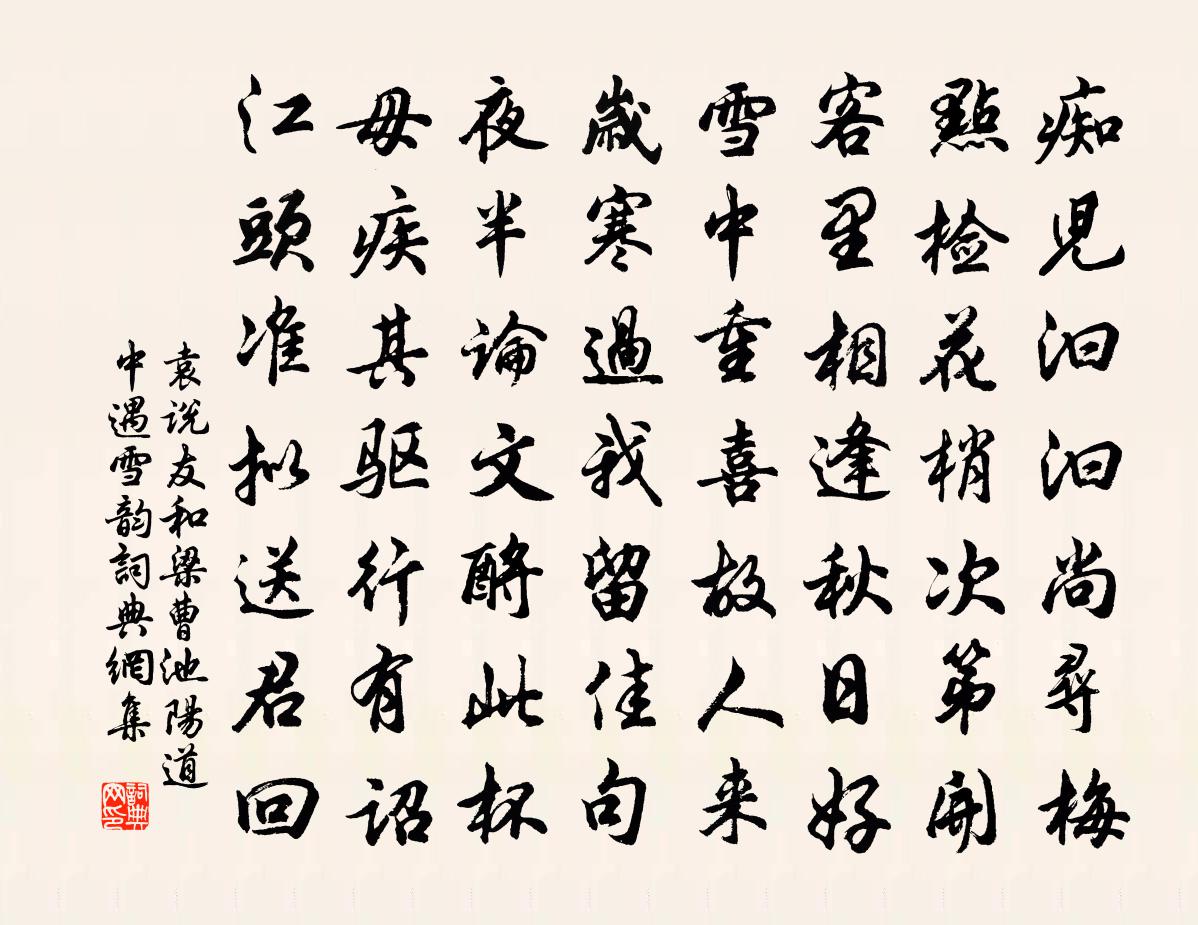 痴児汩汩尚尋梅
點檢花梢次第開
客里相逢秋日好
雪中重喜故人来
歲寒過我留佳句
夜半論文酹此杯
毋疾其驱行有诏
江頭准拟送君回
袁说友和梁曹池陽道
中遇雪韵詞典網集
詞典
网印